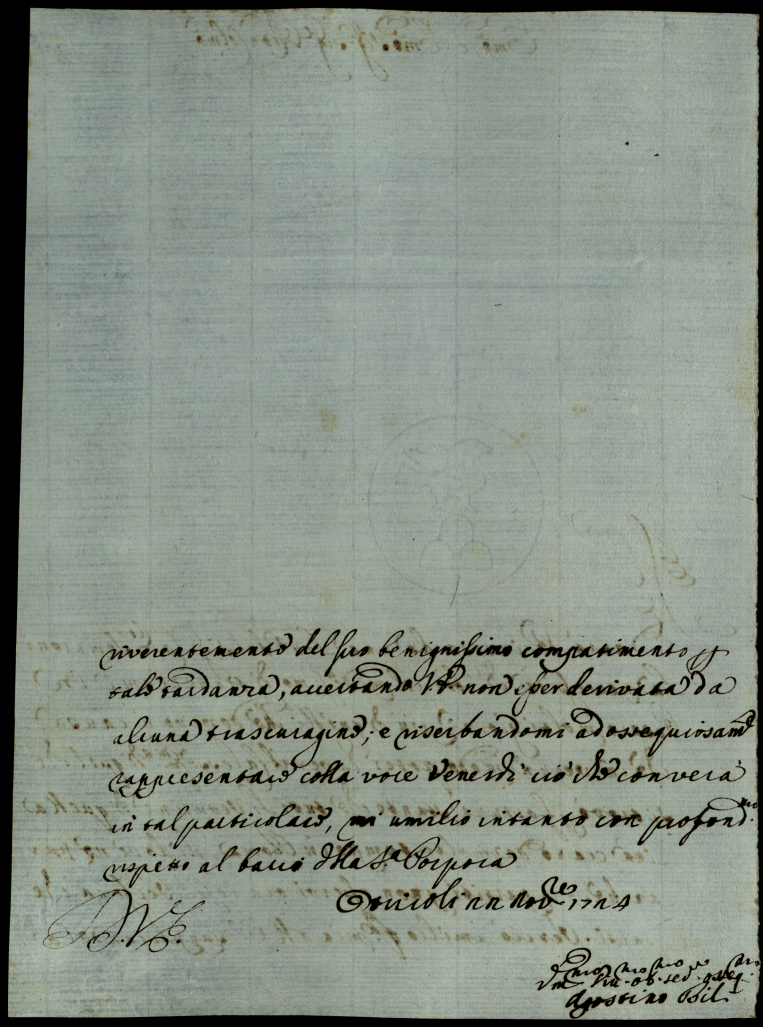 riverentemente del suo benignissimo compatimento p
tale tardanza, accertando V.E. non esser derivata da
alcuna trascuragine; e riserbandomi ad ossequiosamte
rappresentare colla voce Venerdì ciò che converà
in tal particolare, mi umilio intanto con profondmo
rispetto al bacio della Sa Porpora
Otricoli nn Novre 1724
D.V.E.
Agostino